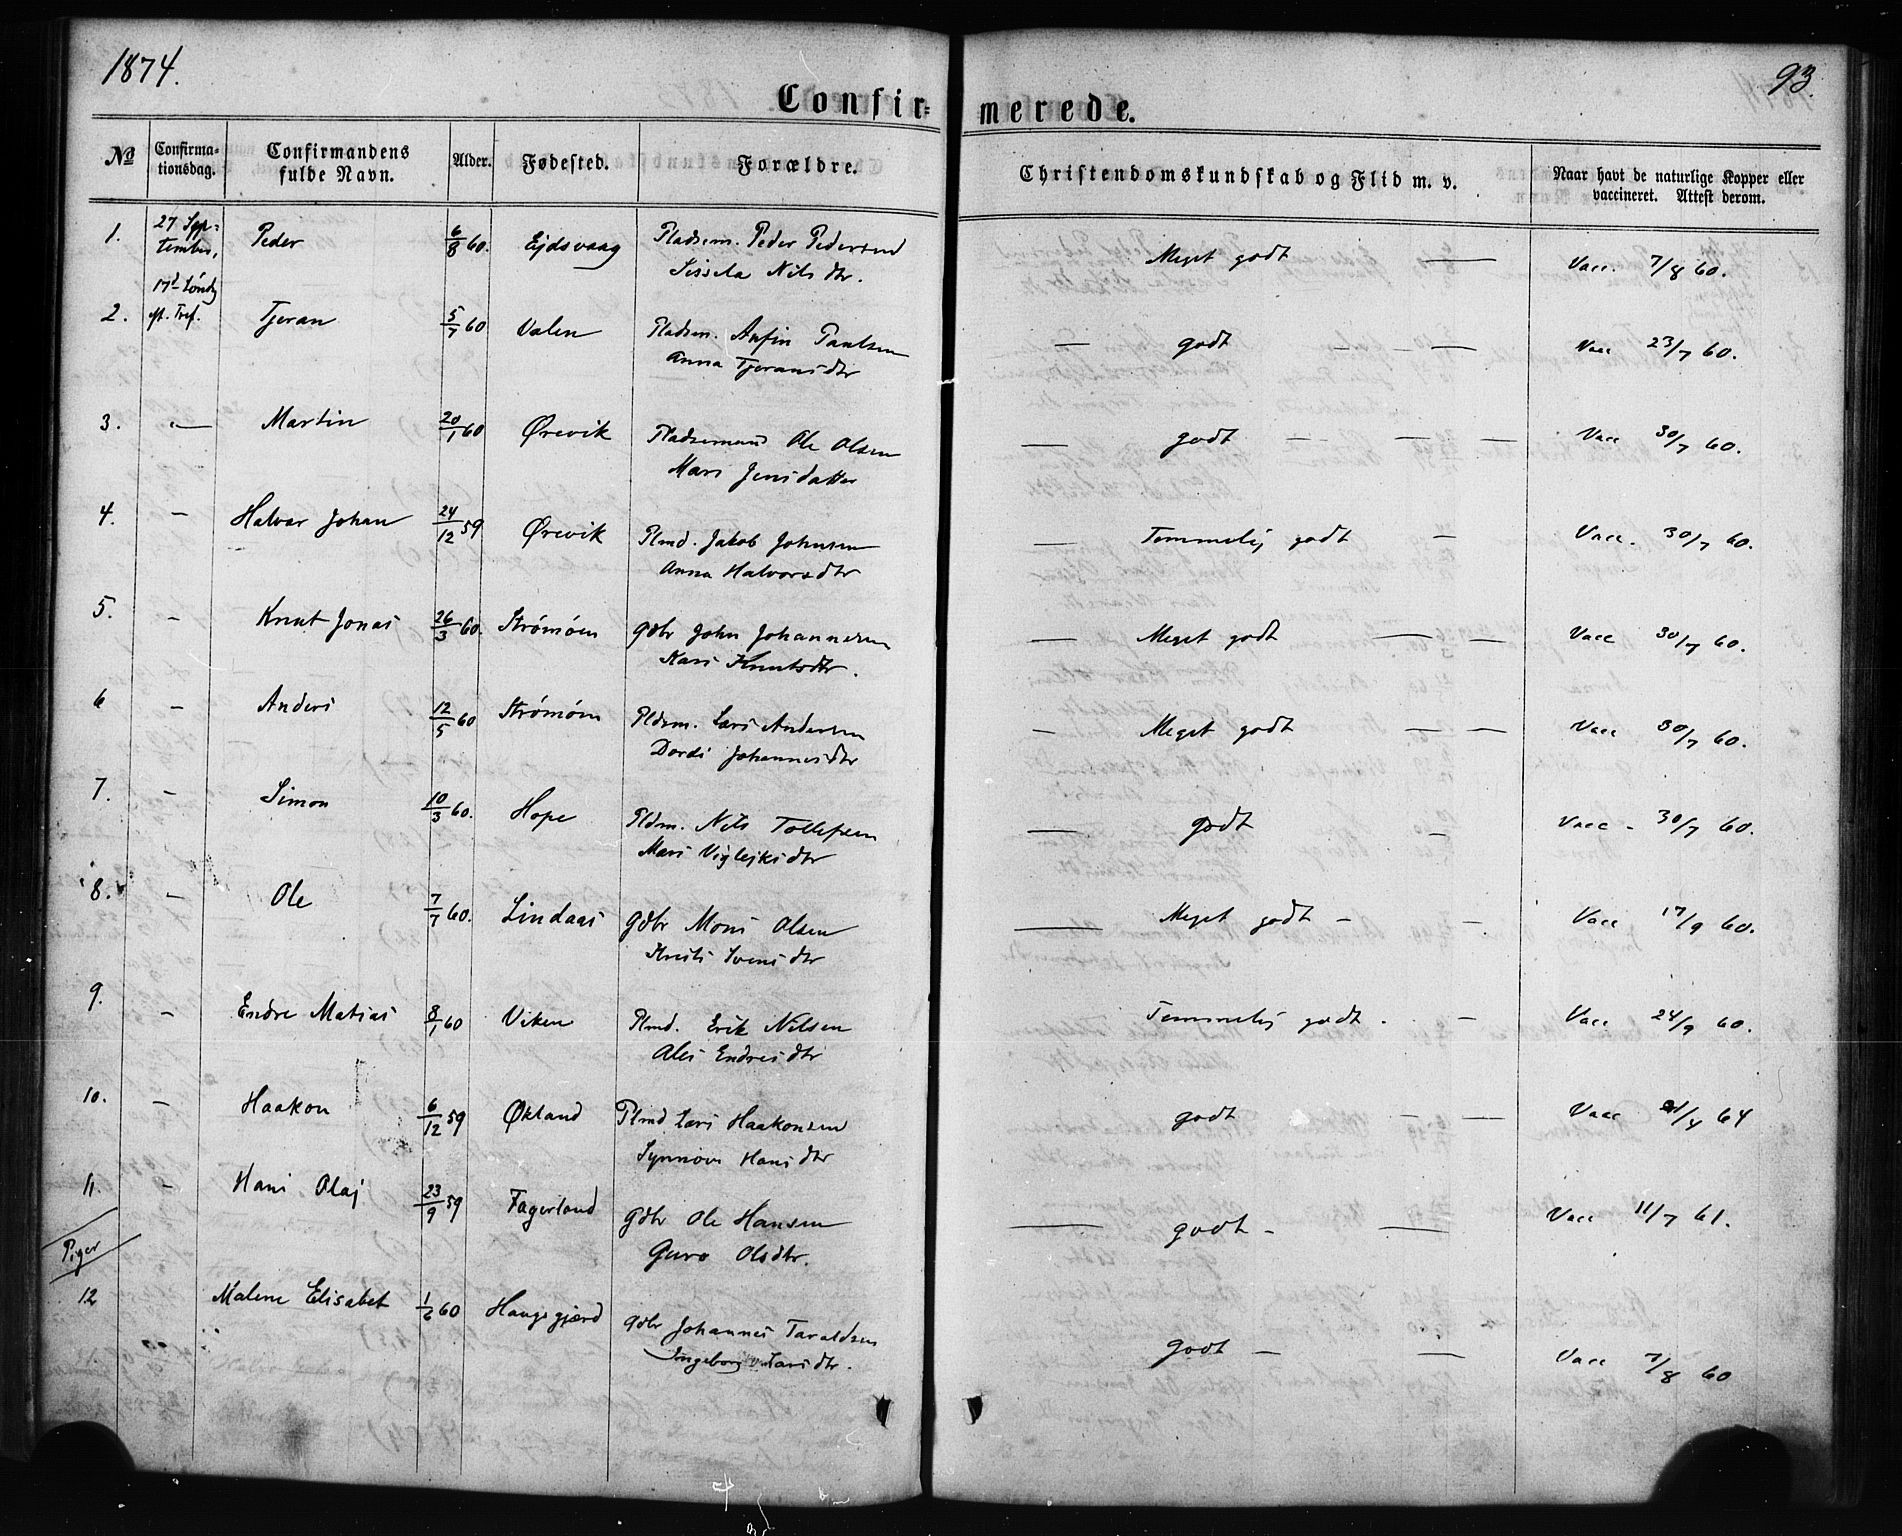 1874.
93.
Confirmerede.
№ Confirmationsdag. Confirmandens fulde Navn. Alder. Fødested. Forældre. Christendomskundskab og Flid m. v. Naar havt de naturlige Kopper eller vaccineret. Attest derom.
1. 27 September, Peder 6/8 60. Ejdsvaag Pladsem. Peder Pedersen Meget godt — Vacc. 7/8 60.
Sissela Nilsdtr.
17d Søndg
2. eft. Tref. Tjeran 5/7 60 Valen Pladsm. Anfin Paulsen — godt — — — Vacc 23/7 60.
Anna Tjeransdtr
3. — Martin 20/1 60 Ørevik Pladsemand Ole Olsen — godt — — — Vacc 30/7 60.
Mari Jensdatter
4. — Halvar Johan 24/12 59 Ørevik Plmd. Jakob Johnsen — Temmelig godt — Vacc. 30/7 60.
Anna Halvorsdtr
5. — Knut Jonas 26/3 60. Strømøen Gdbr John Johannesen — Meget godt — — Vacc 30/7 60.
Kari Knutsdtr.
6 — Anders 12/5 60 Strømøen Pldsm. Lars Andersen — Meget godt — — Vacc 30/7 60.
Dordi Johannesdtr
7. — Simon 10/3 60. Hope Pldm. Nils Tollefsen — godt — Vacc - 30/7 60.
Mari Viglejksdtr
8. — Ole 7/7 60. Lindaas Gdbr Mons Olsen — Meget godt — — Vacc 17/9 60.
Kristi Svensdtr
9. — Endre Matias 8/1 60 Viken Plmd. Erik Nilsen Temmelig godt. — Vacc 24/9 60.
Ales Endresdtr
10. — Haakon 6/12 59 Økland Plmd Lars Haakonsen godt — — Vacc /4 64
Synnøve Hansdtr
11. — Hans Olaj 23/9 59 Fagerland Gdbr Ole Hansen — godt - — Vacc 11/7 61.
Guro Olsdtr.
Piger
12 Malene Elisabet 1/6 60 Haugsgjerd Gdbr Johannes Taraldsen godt — — Vacc 7/8 60
Ingeborg Larsdtr.